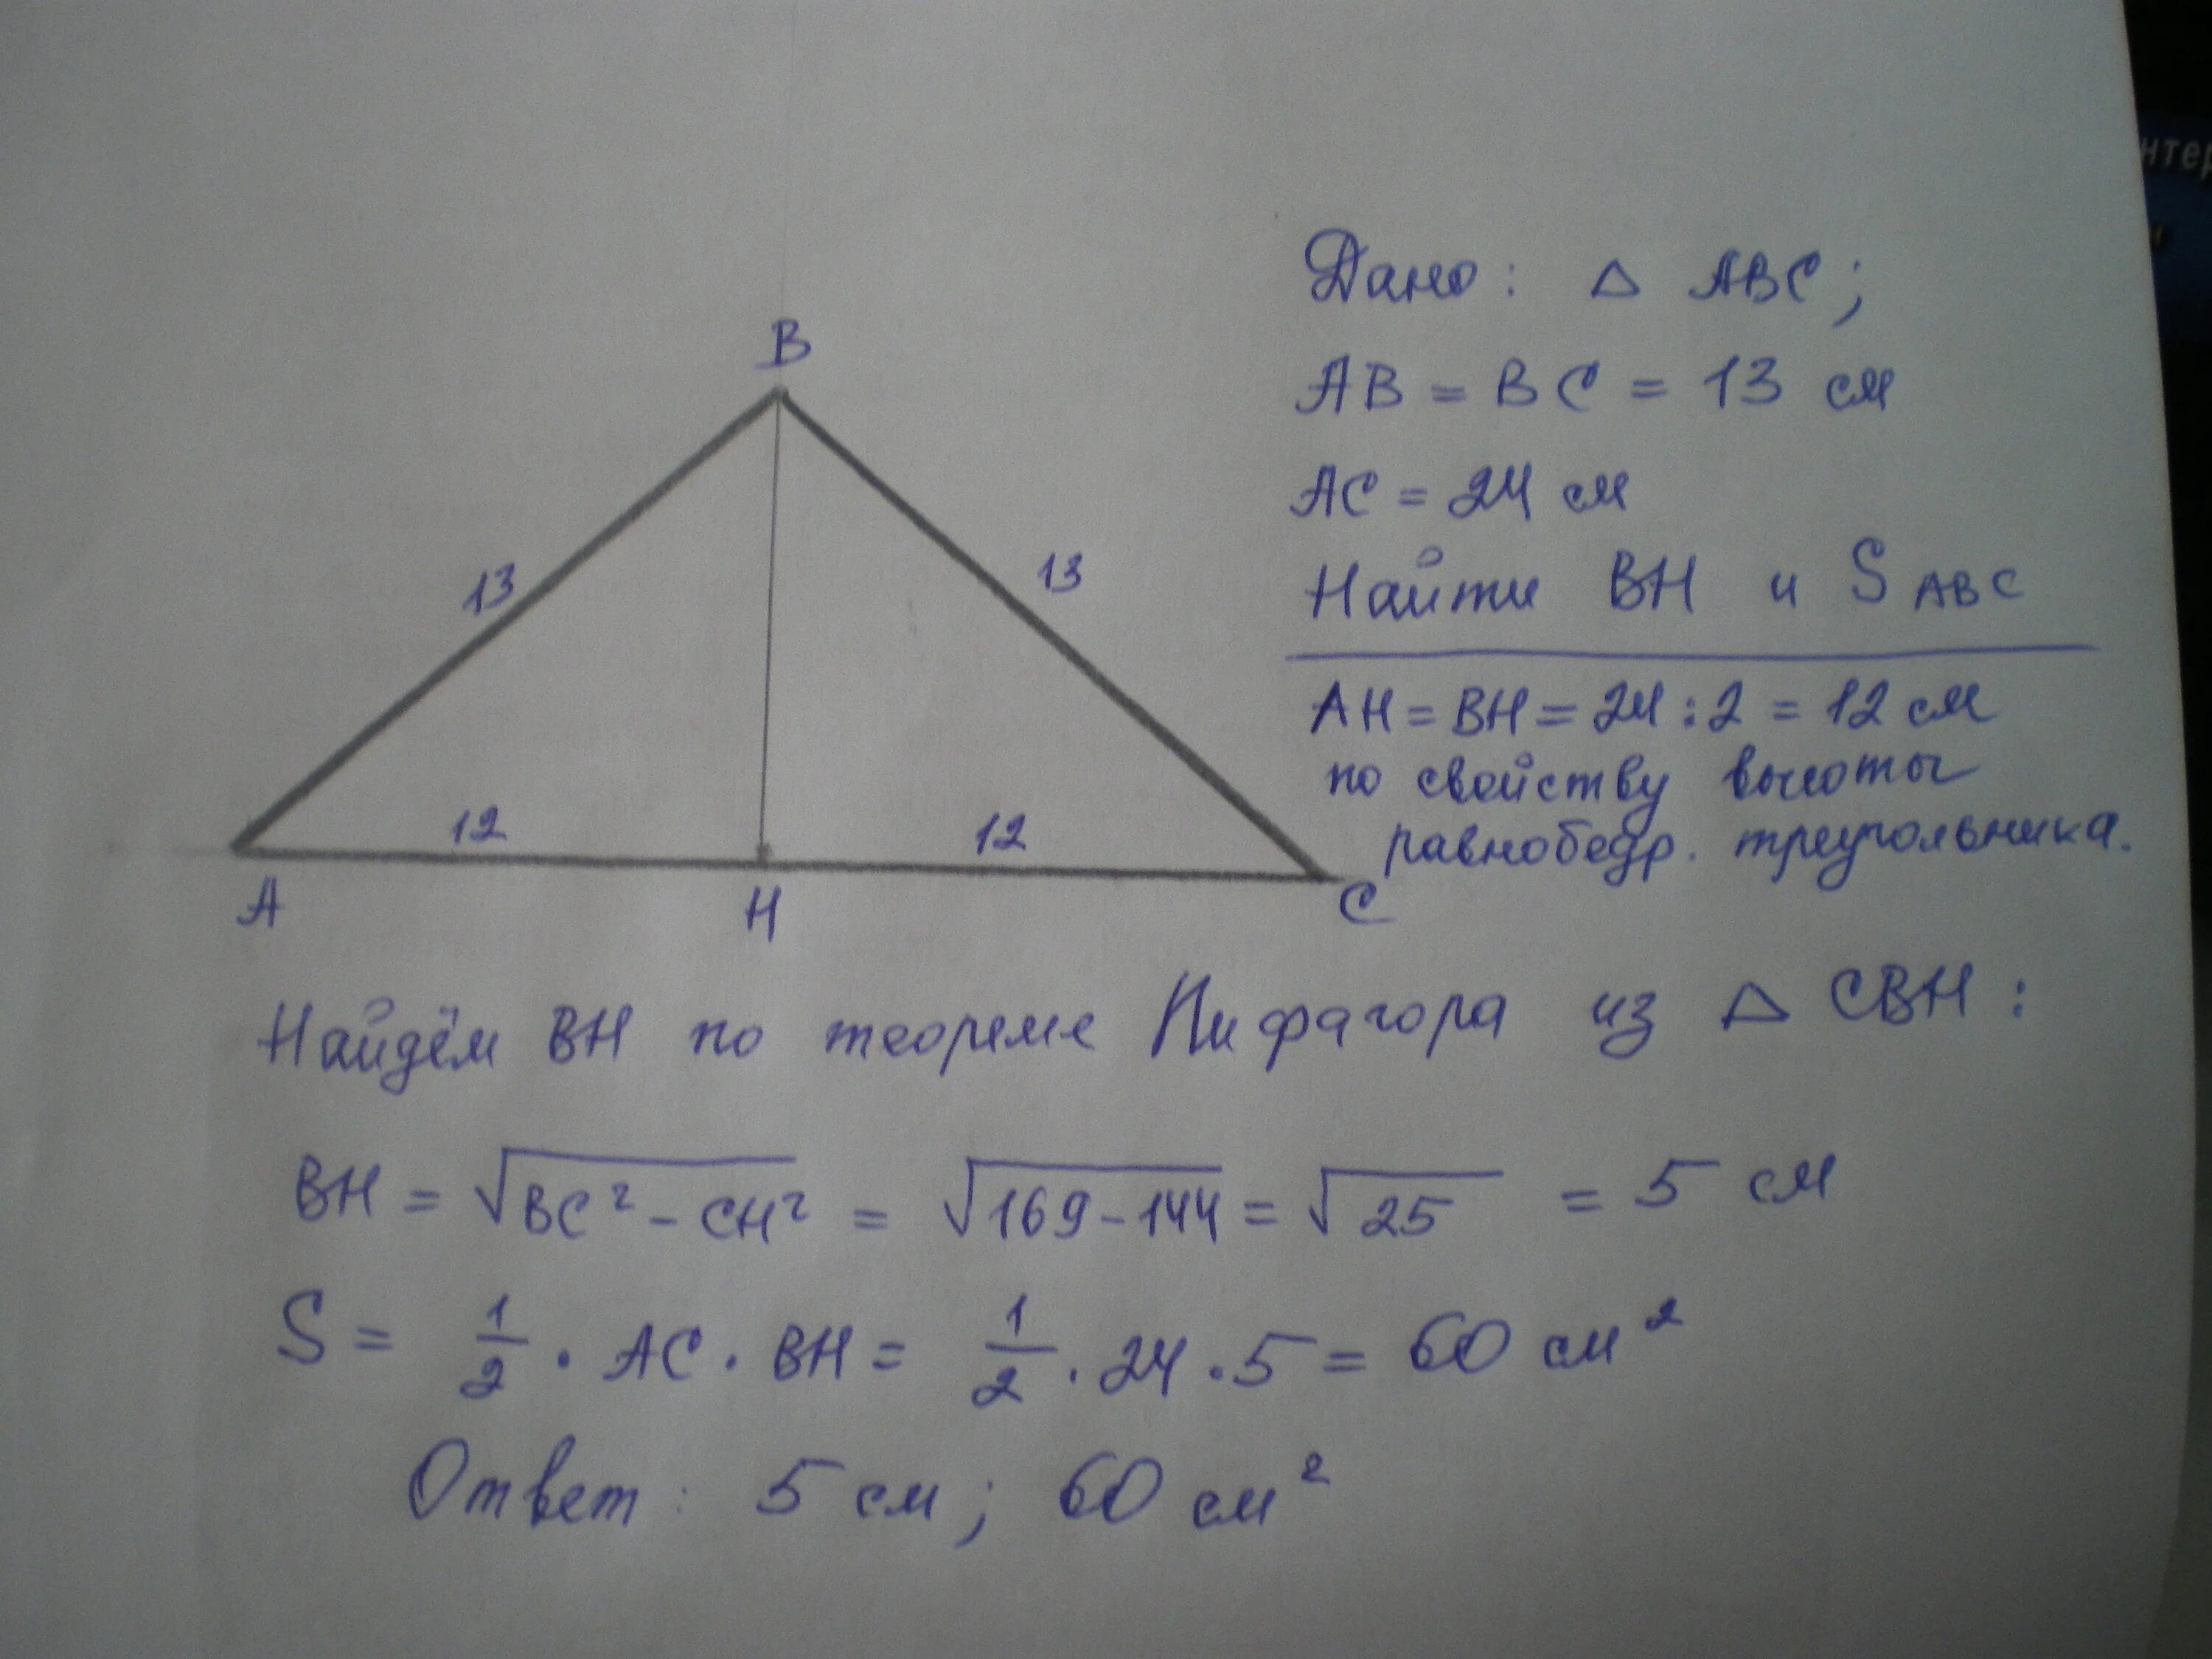 Дано: △ ABC;
AB = BC = 13 см
AC = 24 см
Найти BH и S ABC
AH = BH = 24 : 2 = 12 см
по свойству высоты
равнобедр. треугольника.
B
13
13
12
12
A
H
C
Найдём BH по теореме Пифагора из △ CBH:
BH = √BC² - CH² = √169 - 144 = √25 = 5 см
S = 1/2 · AC · BH = 1/2 · 24 · 5 = 60 см²
Ответ: 5 см; 60 см²